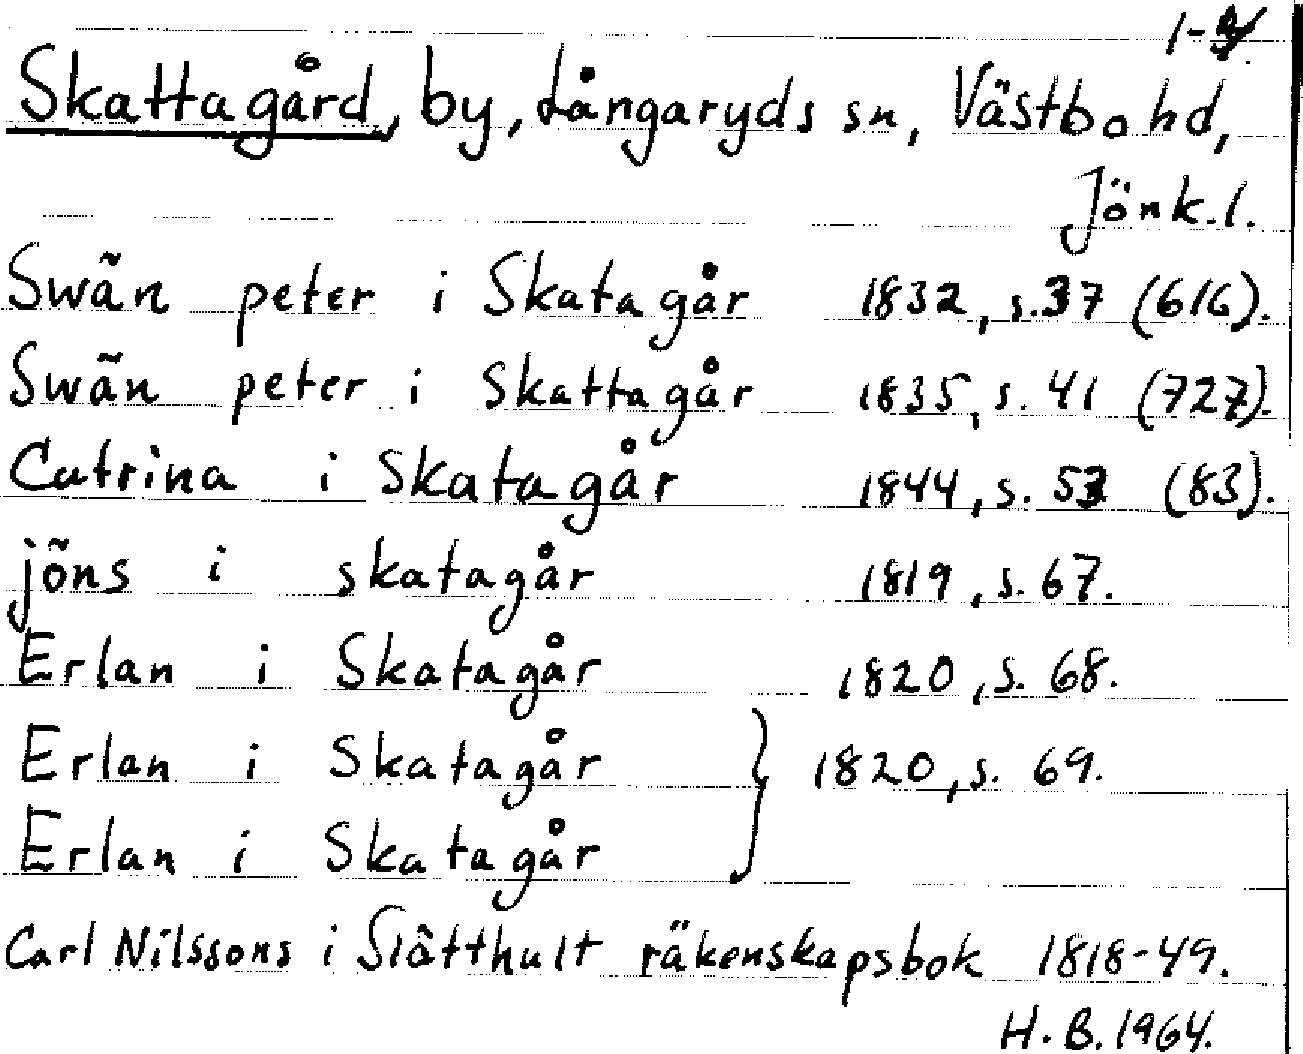 Skattagård, by, Långaryds sn, Västbo hd,
Jönk. l.
Swãn peter i Skatagår 1832, s. 37 (616).
Swãn peter i Skattagår 1835, s. 41 (727).
Catrina i Skatagår 1844, s. 53 (83).
jõns i skatagår 1819, s. 67.
Erlan i Skatagår 1820, s. 68.
Erlan i Skatagår } 1820, s. 69.
Erlan i Skatagår
Carl Nilssons i Slätthult räkenskapsbok 1818-49.
H. B. 1964.